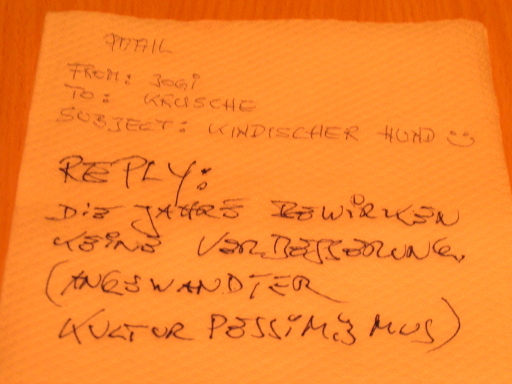 FROM: JOGI
TO: KRUSCHE
SUBJECT: KINDISCHER HUND :)
REPLY:
DIE JAHRE BEWIRKEN
KEINE VERBESSERUNG.
(ANGEWANDTER
KULTUR PESSIMISMUS)